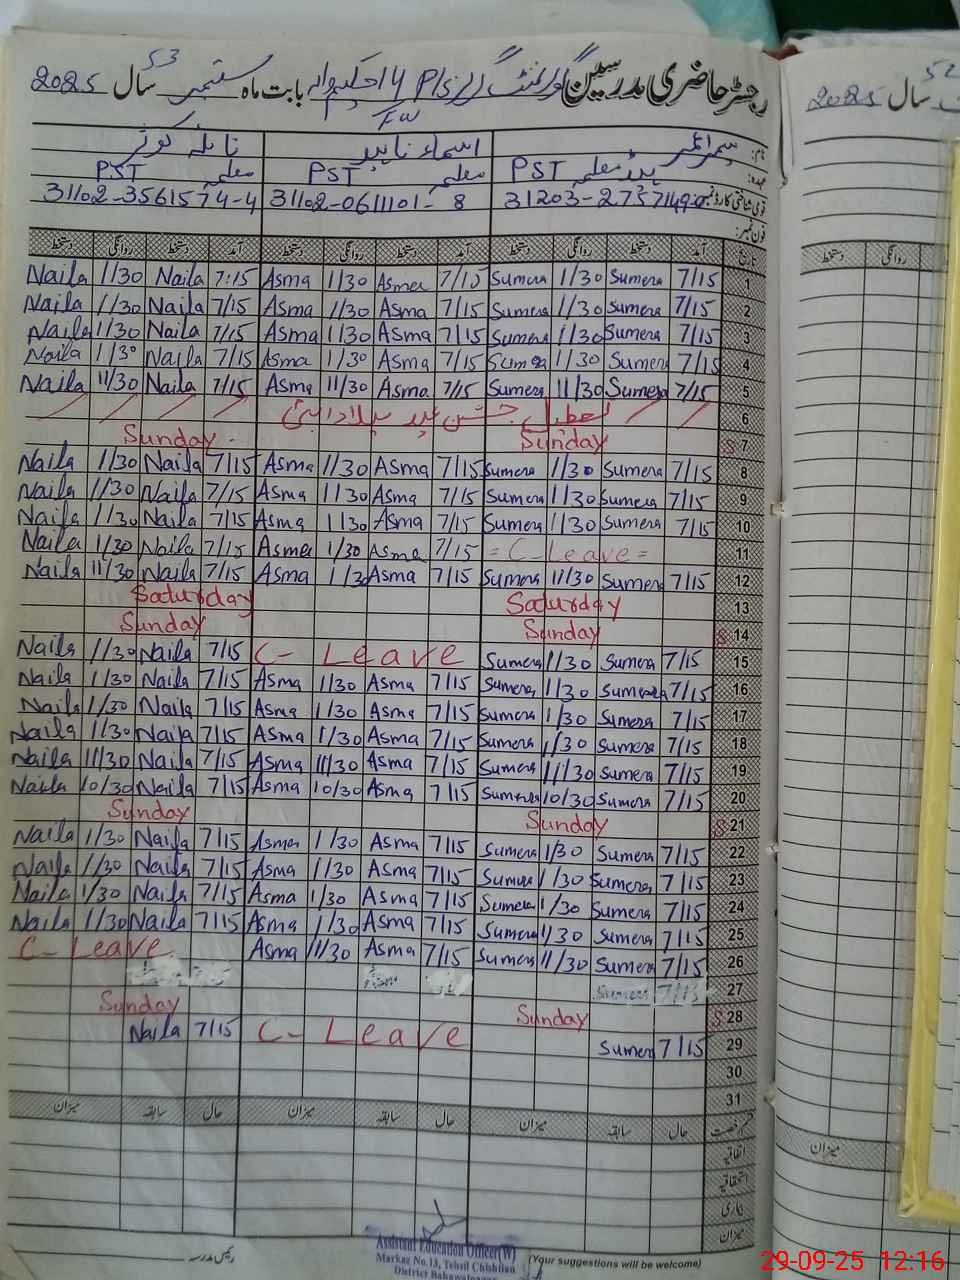 53
رجسٹر حاضری مدرسین گورنمنٹ گرلز P/S 14 حکیم والہ بابت ماہ ستمبر سال 2025
FW
نام: اسماء نایلہ کوثر
عہدہ: ہیڈ معلمہ PST معلمہ PST معلمہ PST
قومی شناختی کارڈ نمبر 31102-0611101-8 31102-3561574-4
فون نمبر:
تاریخ آمد دستخط روانگی دستخط آمد دستخط روانگی دستخط آمد دستخط روانگی دستخط
Naila 1/30 Naila 7:15 Asma 1/30 Asma 7/15 Sumera 1/30 Sumera 7/15 1
Naila 1/30 Naila 7/15 Asma 1/30 Asma 7/15 Sumera 1/30 Sumera 7/15 2
Naila 1/30 Naila 7/15 Asma 1/30 Asma 7/15 Sumera 1/30 Sumera 7/15 3
Naila 1/30 Naila 7/15 Asma 1/30 Asma 7/15 Sumera 1/30 Sumera 7/15 4
Naila 11/30 Naila 7/15 Asma 11/30 Asma 7/15 Sumera 11/30 Sumera 7/15 5
تعطیل جشن عید میلاد النبی 6
Sunday Sunday S 7
Naila 1/30 Naila 7/15 Asma 1/30 Asma 7/15 Sumera 1/30 Sumera 7/15 8
Naila 1/30 Naila 7/15 Asma 1/30 Asma 7/15 Sumera 1/30 Sumera 7/15 9
Naila 1/30 Naila 7/15 Asma 1/30 Asma 7/15 Sumera 1/30 Sumera 7/15 10
Naila 1/30 Naila 7/15 Asma 1/30 Asma 7/15 = C-Leave = 11
Naila 11/30 Naila 7/15 Asma 1/3 Asma 7/15 Sumera 11/30 Sumera 7/15 12
Saturday Saturday 13
Sunday Sunday S 14
Naila 1/30 Naila 7/15 C- Leave Sumera 1/30 Sumera 7/15 15
Naila 1/30 Naila 7/15 Asma 1/30 Asma 7/15 Sumera 1/30 Sumera 7/15 16
Naila 1/30 Naila 7/15 Asma 1/30 Asma 7/15 Sumera 1/30 Sumera 7/15 17
Naila 1/30 Naila 7/15 Asma 1/30 Asma 7/15 Sumera 1/30 Sumera 7/15 18
Naila 11/30 Naila 7/15 Asma 11/30 Asma 7/15 Sumera 11/30 Sumera 7/15 19
Naila 10/30 Naila 7/15 Asma 10/30 Asma 7/15 Sumera 10/30 Sumera 7/15 20
Sunday Sunday S 21
Naila 1/30 Naila 7/15 Asma 1/30 Asma 7/15 Sumera 1/30 Sumera 7/15 22
Naila 1/30 Naila 7/15 Asma 1/30 Asma 7/15 Sumera 1/30 Sumera 7/15 23
Naila 1/30 Naila 7/15 Asma 1/30 Asma 7/15 Sumera 1/30 Sumera 7/15 24
Naila 1/30 Naila 7/15 Asma 1/30 Asma 7/15 Sumera 1/30 Sumera 7/15 25
C- Leave Asma 11/30 Asma 7/15 Sumera 11/30 Sumera 7/15 26
Sumera 7/15 27
Sunday Sunday S 28
Naila 7/15 C- Leave Sumera 7/15 29
30
31
قسم رخصت حال سابقہ میزان حال سابقہ میزان حال سابقہ میزان
اتفاقیہ
استحقاقیہ
بیماری
میزان
رئیس مدرسہ
Assistant Education Officer(W)
Markaz No.13, Tehsil Chishtian
District Bahawalnagar
(Your suggestions will be welcome)
52
سال 2025
روانگی دستخط
میزان
29-09-25 12:16